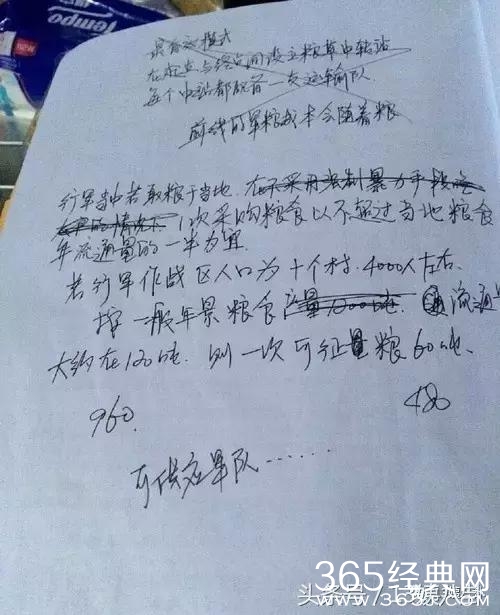 Tempo
最有效模式
在起点与终点间设立粮草中转站
每个中站都配备一支运输队
前线的军粮成本会随着粮
行军当中若取粮于当地.在不采用强制暴力手段
的情况下.1次采购粮食以不超过当地粮食
年流通量的一半为宜.
若行军作战区人口为十个村.4000人左右.
按一般年景粮食产量1000吨.流通量
大约在120吨.则一次可征粮60吨.
960.
480
可供应军队……
头条号
365经典网
www.365jz.com